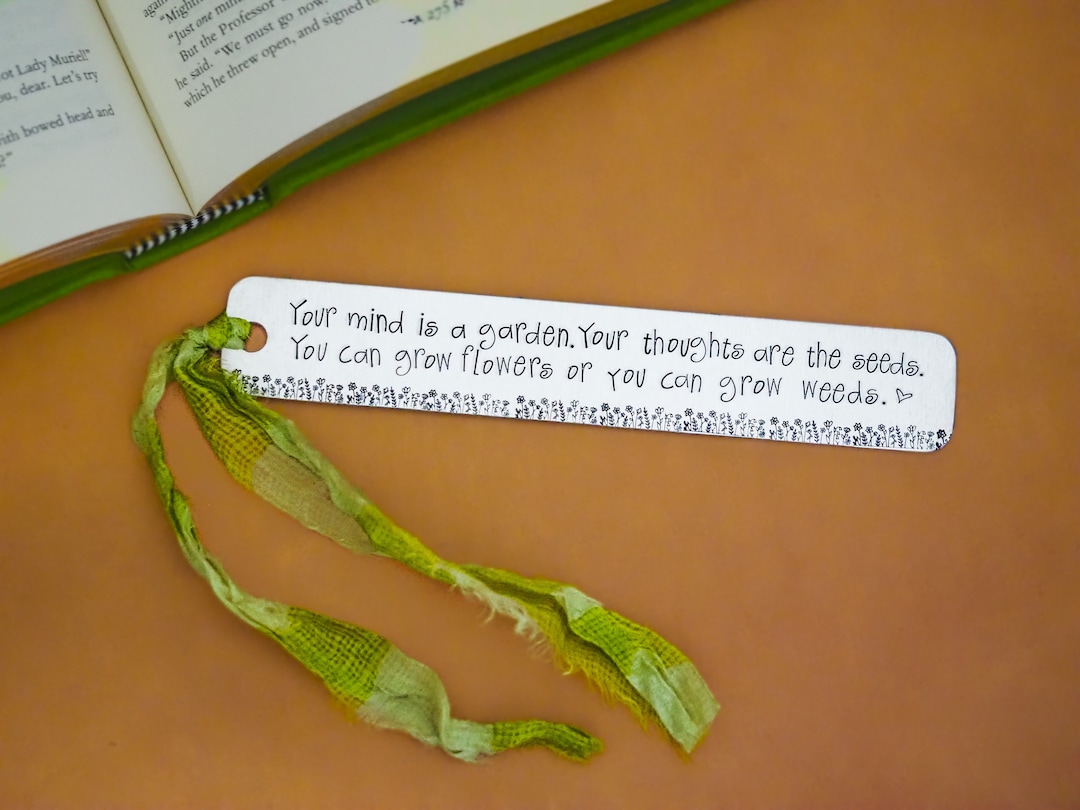 ot Lady Muriel!"
ou, dear. Let's try
with bowed head and
?"
again
"Might
"Just one minu
But the Professor
he said. "We must go now.
which he threw open, and signed to
Your mind is a garden. Your thoughts are the seeds.
You can grow flowers or you can grow weeds. ♡